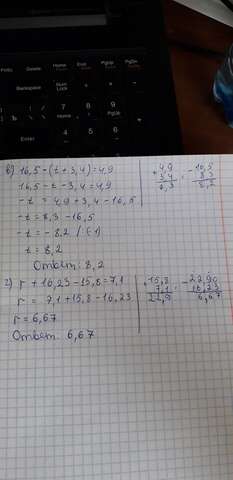 PrtSc Delete Home End PgUp PgDn
Backspace Num Lock / * -
7 Home 8 9 PgUp
4 5 6
Enter
в) 16,5-(t+3,4)=4,9
16,5-t-3,4=4,9
-t = 4,9+3,4-16,5
-t = 8,3-16,5
-t = -8,2 / (-1)
t = 8,2
Ответ: 8,2
+ 4,9
3,4
8,3
- 16,5
8,3
8,2
г) r + 16,23-15,8=7,1
r = 7,1+15,8-16,23
r = 6,67
Ответ: 6,67
+ 15,8
7,1
22,9
- 22,90
16,23
6,67